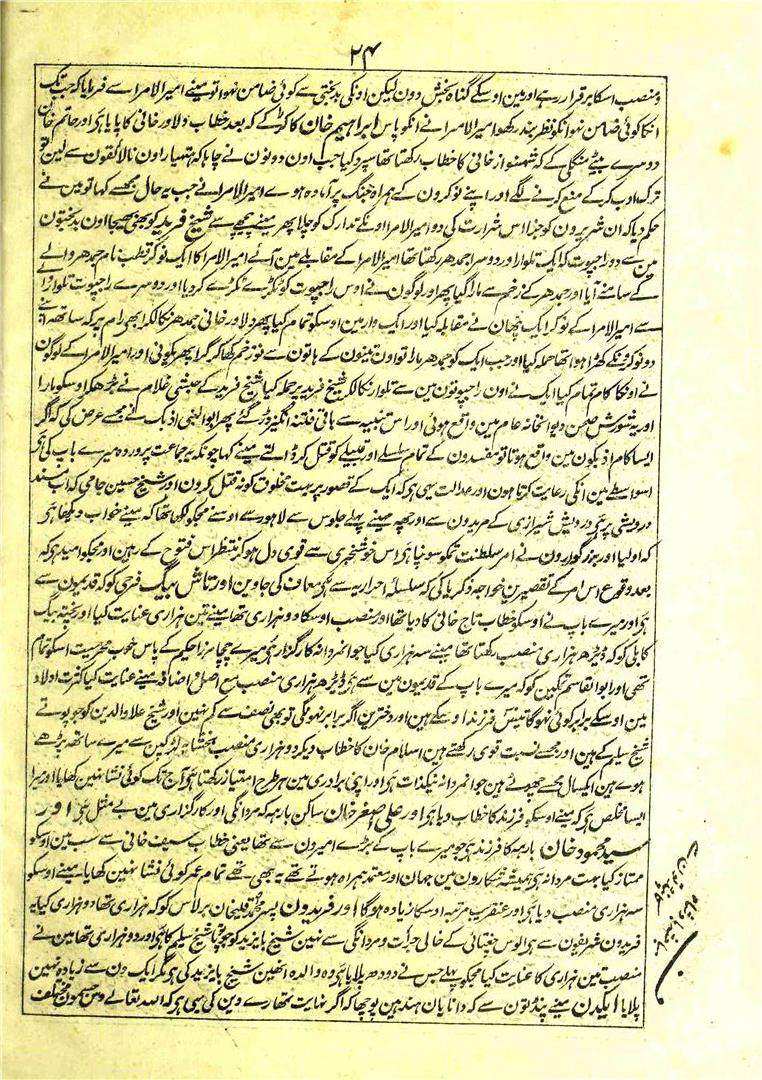 ۲۴
و منصب اسکا برقرار رہے اور مین اوسکے گناہ بخش دون لیکن اونکی بدبختی سے کوئی ضامن نہوا تو مینے امیر الامرا سے فرمایا کہ جب تک
انکا کوئی ضامن نہو انکو نظربند رکھو امیر الامرا نے انکو پاس ابراہیم خان کاکڑ کے کہ بعد خطاب دلاور خانی کا پایا ہی اور حاتم خان
دوسرے بیٹے منگلی کے کہ شہنواز خانی کا خطاب رکھتا تھا سپرد کیا جب اون دونون نے چاہا کہ ہتھیار اون نالائقون سے لین تو
ترک ادب کر کے منع کرنے لگے اور اپنے نوکرون کے ہمراہ جنگ پر آمادہ ہوے امیر الامرا نے جب یہ حال مجھسے کہا تو مین نے
حکم دیا کہ ان شریرون کو جزا اس شرارت کی دو امیر الامرا اونکے تدارک کو چلا پھر مینے پیچھے سے شیخ فرید کو بھی بھیجا اون بدبختون
مین سے دو راجپوت کہ ایک تلوار اور دوسرا جمدھر رکھتا تھا امیر الامرا کے مقابلے مین آئے امیر الامرا کا ایک نوکر قطب نام جمدھر والے
کے سامنے آیا اور جمدھر کے زخم سے مارا گیا پھر اور لوگون نے اوس راجپوت کو ٹکڑے ٹکڑے کر دیا اور دوسرے راجپوت تلوار والے
سے امیر الامرا کے نوکر ایک پٹھان نے مقابلہ کیا اور ایک وار مین اوسکو تمام کیا پھر دلاور خانی جمدھر نکالکر ابھی رام پر کہ ساتھ اپنے
دو نوکرونکے کھڑا ہوا تھا حملہ کیا اور جب ایک کو جمدھر مارا تو اون تینون کے ہاتون سے نو زخم کھاکر گرا پھر کئی اور امیر الامرا کے لوگون
نے اونکا کام تمام کیا ایک نے اون راجپوتون مین سے تلوار نکالکر شیخ فرید پر حملہ کیا شیخ فرید کے حبشی غلام نے بڑھکر اوسکو مارا
اور یہ شورش صحن دیوانخانہ عام مین واقع ہوئی اور اس تنبیہ سے باقی فتنہ انگیز ڈر گئے پھر ابو النبی اذبک نے مجھسے عرض کی کہ اگر
ایسا کام اذبکون مین واقع ہوتا تو مفسدون کے تمام سلسلے اور قبیلے کو قتل کر ڈالتے مینے کہا چونکہ یہ جماعت پروردہ میرے باپ کی ہی
اسواسطے مین انکی رعایت کرتا ہون اور عدالت یہی ہی کہ ایک کے قصور پر بہت مخلوق کو نہ قتل کرون اور شیخ حسین جامی کہ اب مسند
درویشی پر ہی درویش شیرازی کے مریدون سے اور چھہ مہینے پہلے جلوس سے لاہور سے اوسنے مجکو لکھا تھا کہ مینے خواب دیکھا ہی
کہ اولیا اور بزرگوارون نے امر سلطنت تمکو سونپا ہی اس خوشخبری سے قوی دل ہوکر منتظر اس فتوح کے رہین اور مجکو امید ہی کہ
بعد وقوع اس امر کے تقصیرین خواجہ ذکریا کی کہ سلسلہ احراریہ سے ہی معاف کی جاوین اور تاش بیگ فرجی کو کہ قدیمون سے
ہی اور میرے باپ نے اوسکو خطاب تاج خانی کا دیا تھا اور منصب اوسکا دو ہزاری تھا مینے تین ہزاری عنایت کیا اور بختہ بیگ
کابلی کو کہ ڈیڑھ ہزاری منصب رکھتا تھا مینے سہ ہزاری کیا جوانمردانہ کارگزار ہی میرے چچا مرزا حکیم کے پاس خوب محرمیت اسکو تمام
تھی اور ابو القاسم تمکین کو کہ میرے باپ کے قدیمون مین سے ہی ڈیڑھ ہزاری منصب مع اصل اضافہ مینے عنایت کیا کثرت اولاد
مین اوسکے برابر کوئی نہوگا تیس فرزند اوسکے ہین اور دخترین اگر برابر نہونگی تو بھی نصف سے کم نہین اور شیخ علاؤالدین کو جو پوتے
شیخ سلیم کے ہین اور مجھسے نسبت قوی رکھتے ہین اسلام خان کا خطاب دیکر دو ہزاری منصب بخشا یہ لڑکپن سے میرے ساتھ بڑھے
ہوے ہین ایک سال مجھسے چھوٹے ہین جوانمردانہ نیکذات ہی اور اپنی برادری مین ہر طرح امتیاز رکھتا ہی آج تک کوئی نشا نہین کھایا اور میرا
ایسا مخلص ہی کہ مینے اوسکو فرزند کا خطاب دیا ہی اور علی اصغر خان ساکن بارہہ کہ مردانگی اور کارگزاری مین بے مثل ہی اور
سید محمود خان بارہہ کا فرزند ہی جو میرے باپ کے بڑے امیرون سے تھا یعنی خطاب سیف خانی سے سب مین اوسکو
ممتاز کیا بہت مردانہ ہی ہمیشہ شکارون مین جہان اور معتمد ہمراہ ہوتے تھے یہ بھی تھے تمام عمر کوئی نشا نہین کھایا مینے اوسکو
سہ ہزاری منصب دیا ہی اور عنقریب مرتبہ اوسکا زیادہ ہوگا اور فریدون پسر محمد قلیخان برلاس کو کہ ہزاری تھا دو ہزاری کیا یہ
فریدون شریفون سے ہی الوس چغتائی کے خالی جرأت و مردانگی سے نہین شیخ بایزید کو جو پوتا شیخ سلیم کا ہی اور دو ہزاری تھا مین نے
منصب تین ہزاری کا عنایت کیا مجکو پہلے جس نے دودھ پلایا ہی وہ والدہ انھین شیخ بایزید کی ہی مگر ایک دن سے زیادہ نہین
پلایا ایکدن مینے پنڈتون سے کہ دانایان ہند ہین پوچھا کہ اگر نہایت تمھارے دین کی یہی ہی کہ اللہ تعالے دس جسمون مختلف